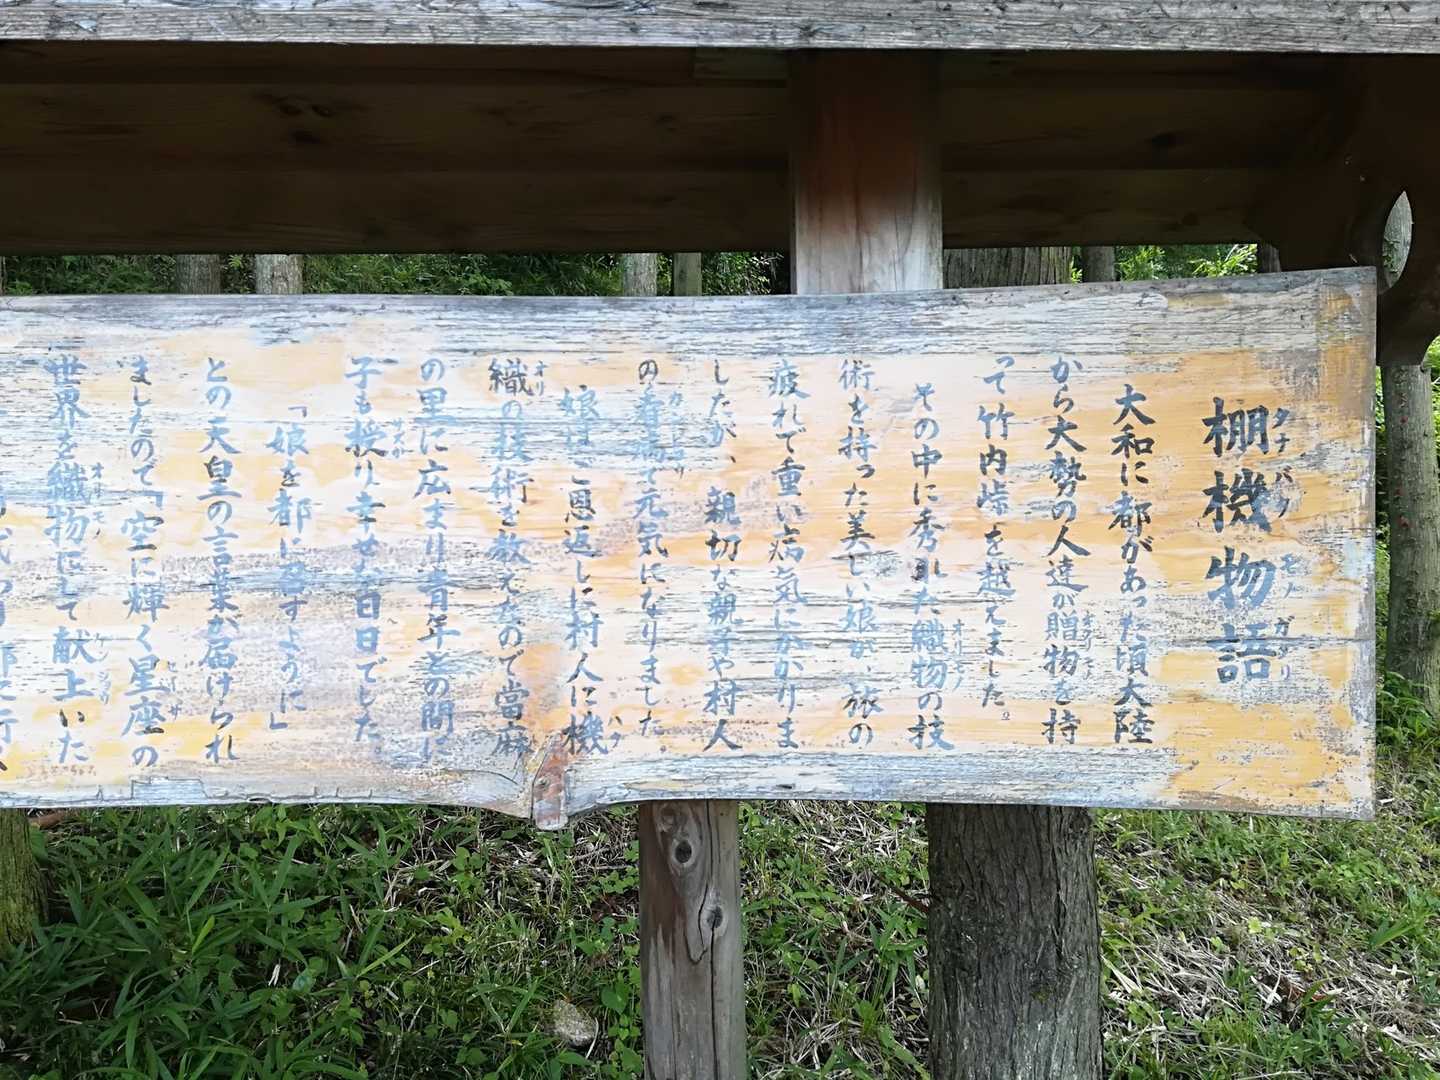 棚機物語
タナバタ モノ ガタリ
大和に都があった頃大陸
から大勢の人達が贈物を持
って竹内峠を越えました。
その中に秀れた織物の技
術を持った美しい娘が、旅の
疲れで重い病気にかかりま
したが、親切な親子や村人
の看病で元気になりました。
娘はご恩返しに村人に機
織の技術を教えたので當麻
の里に広まり青年との間に
子も授り幸せな日日でした。
「娘を都に召すように」
との天皇の言葉が届けられ
ましたので「空に輝く星座の
世界を織物にして献上いた